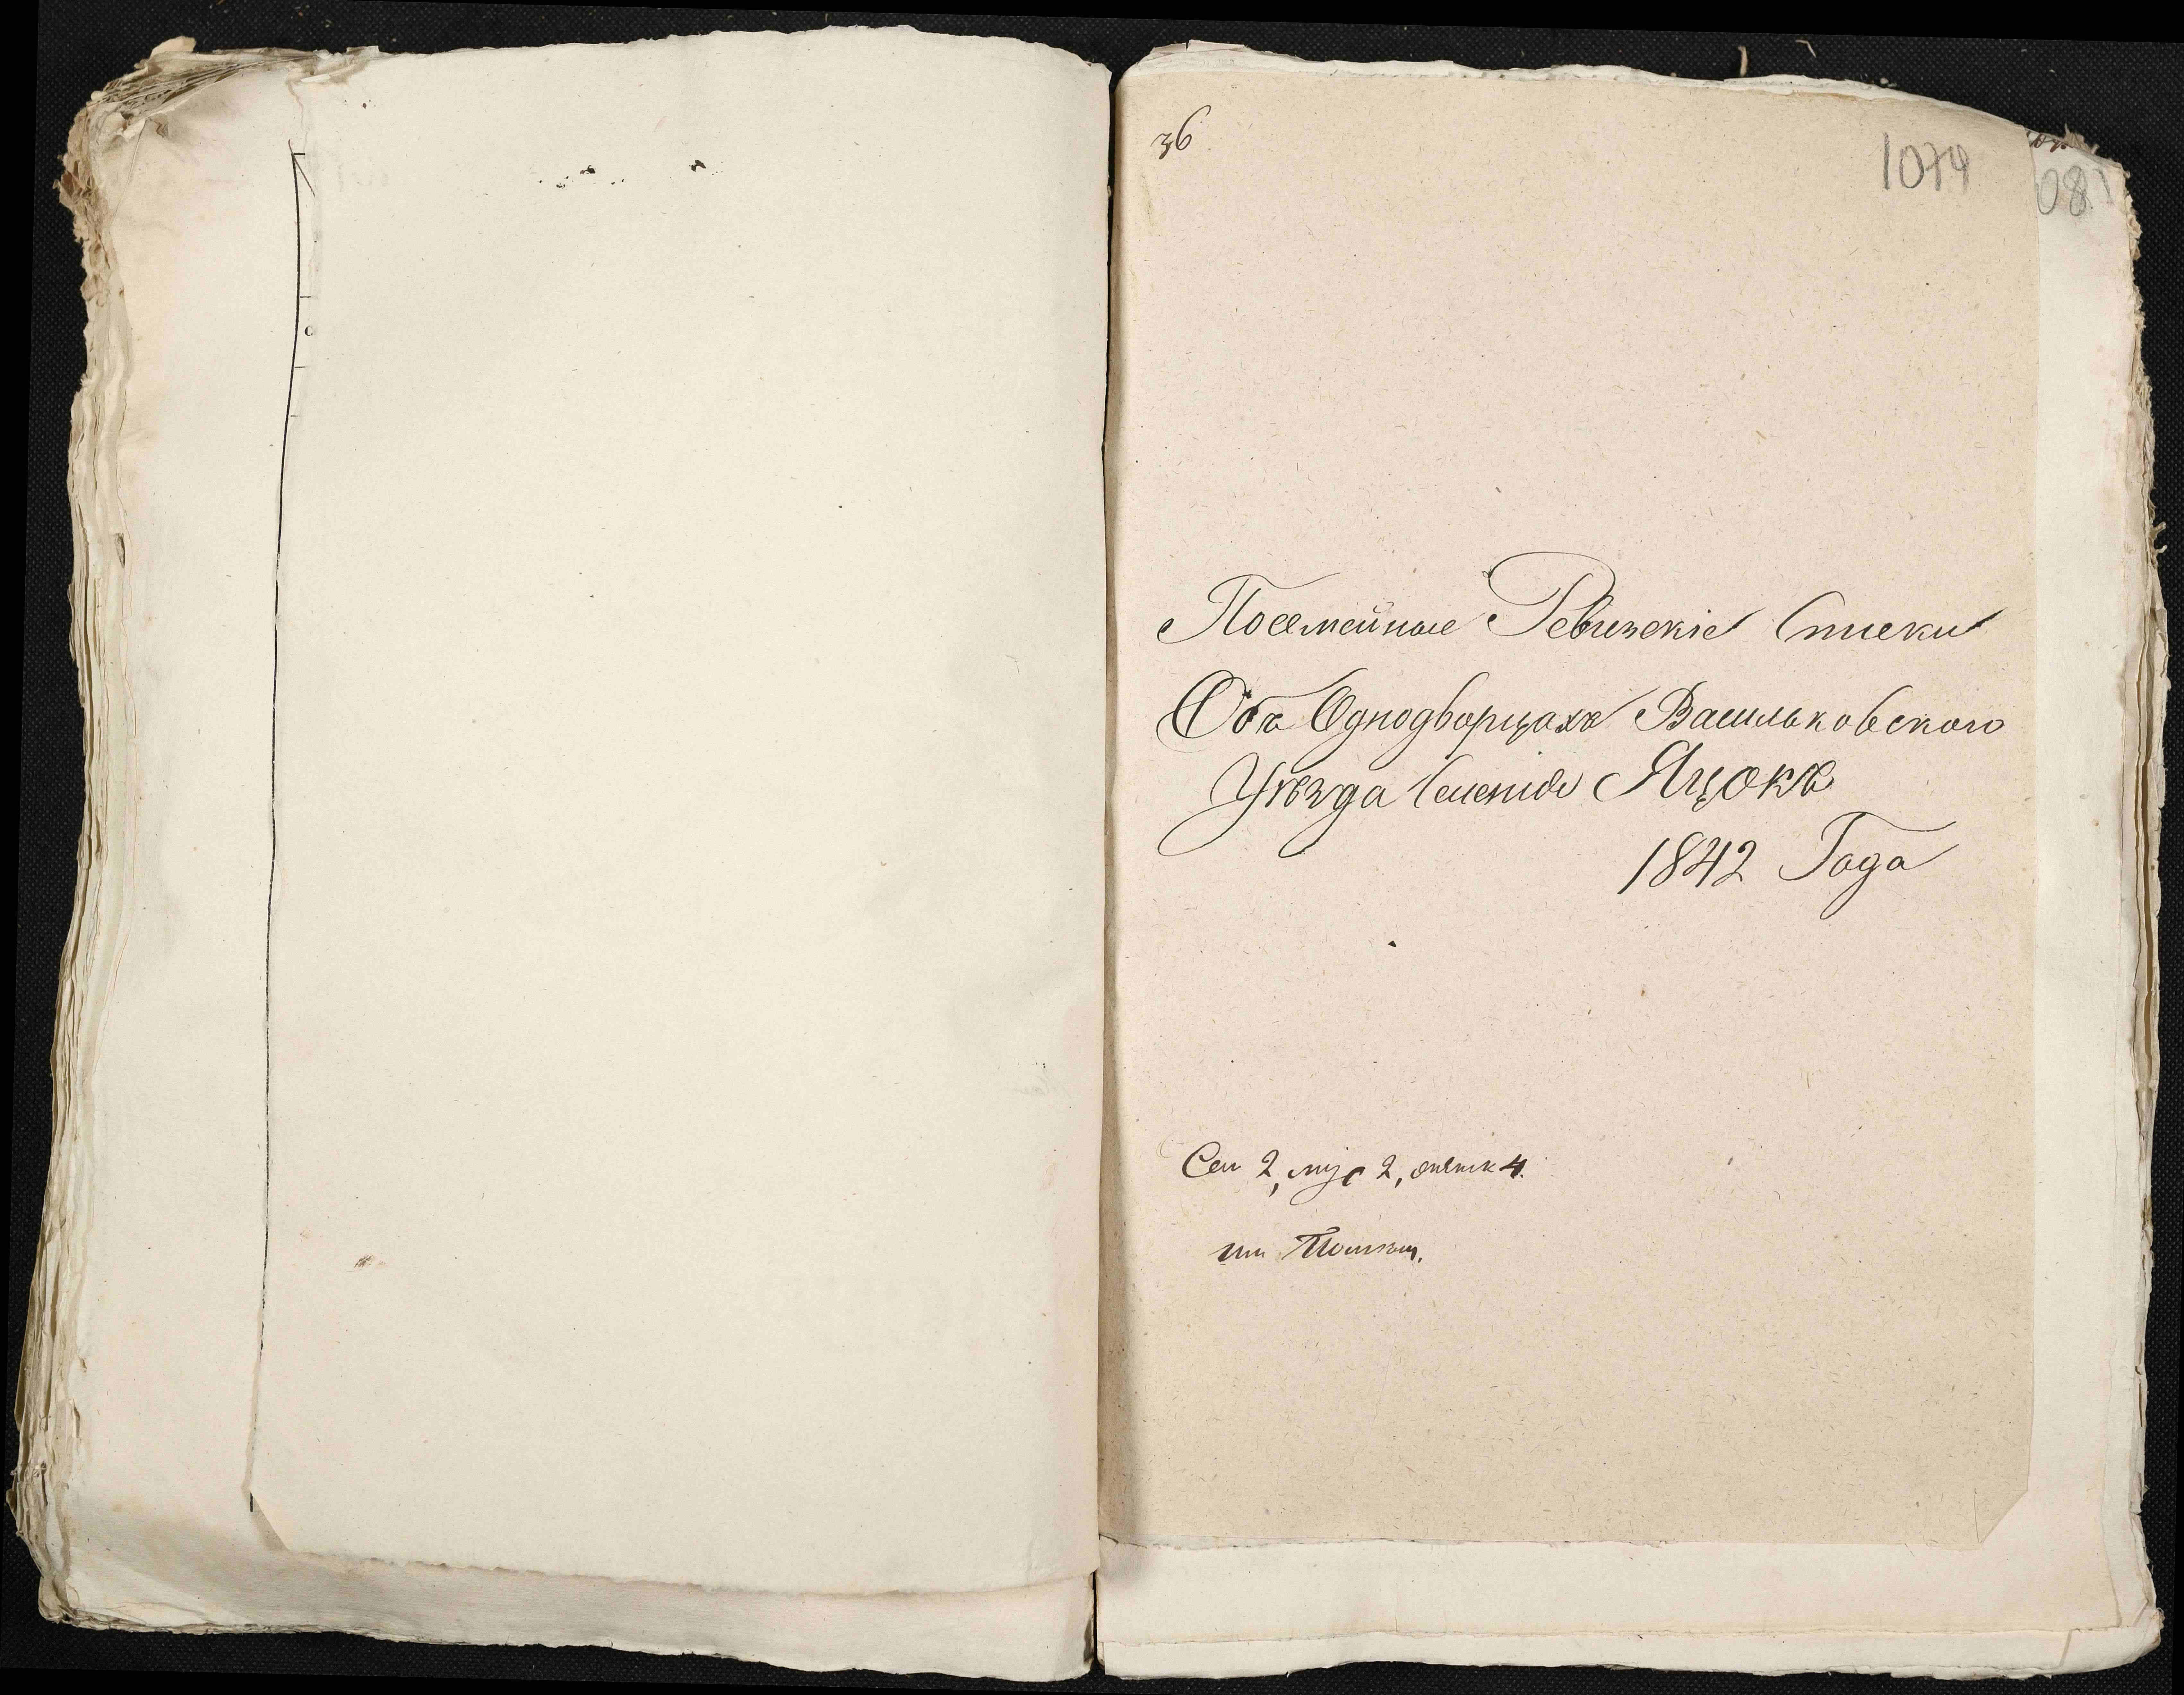 36
1079
08
Посемейные Ревизскіе Списки
Объ Однодворцахъ Васильковскаго
Уѣзда Селенія Яцокъ
1842 Года
Сем 2, муж 2, женск 4.